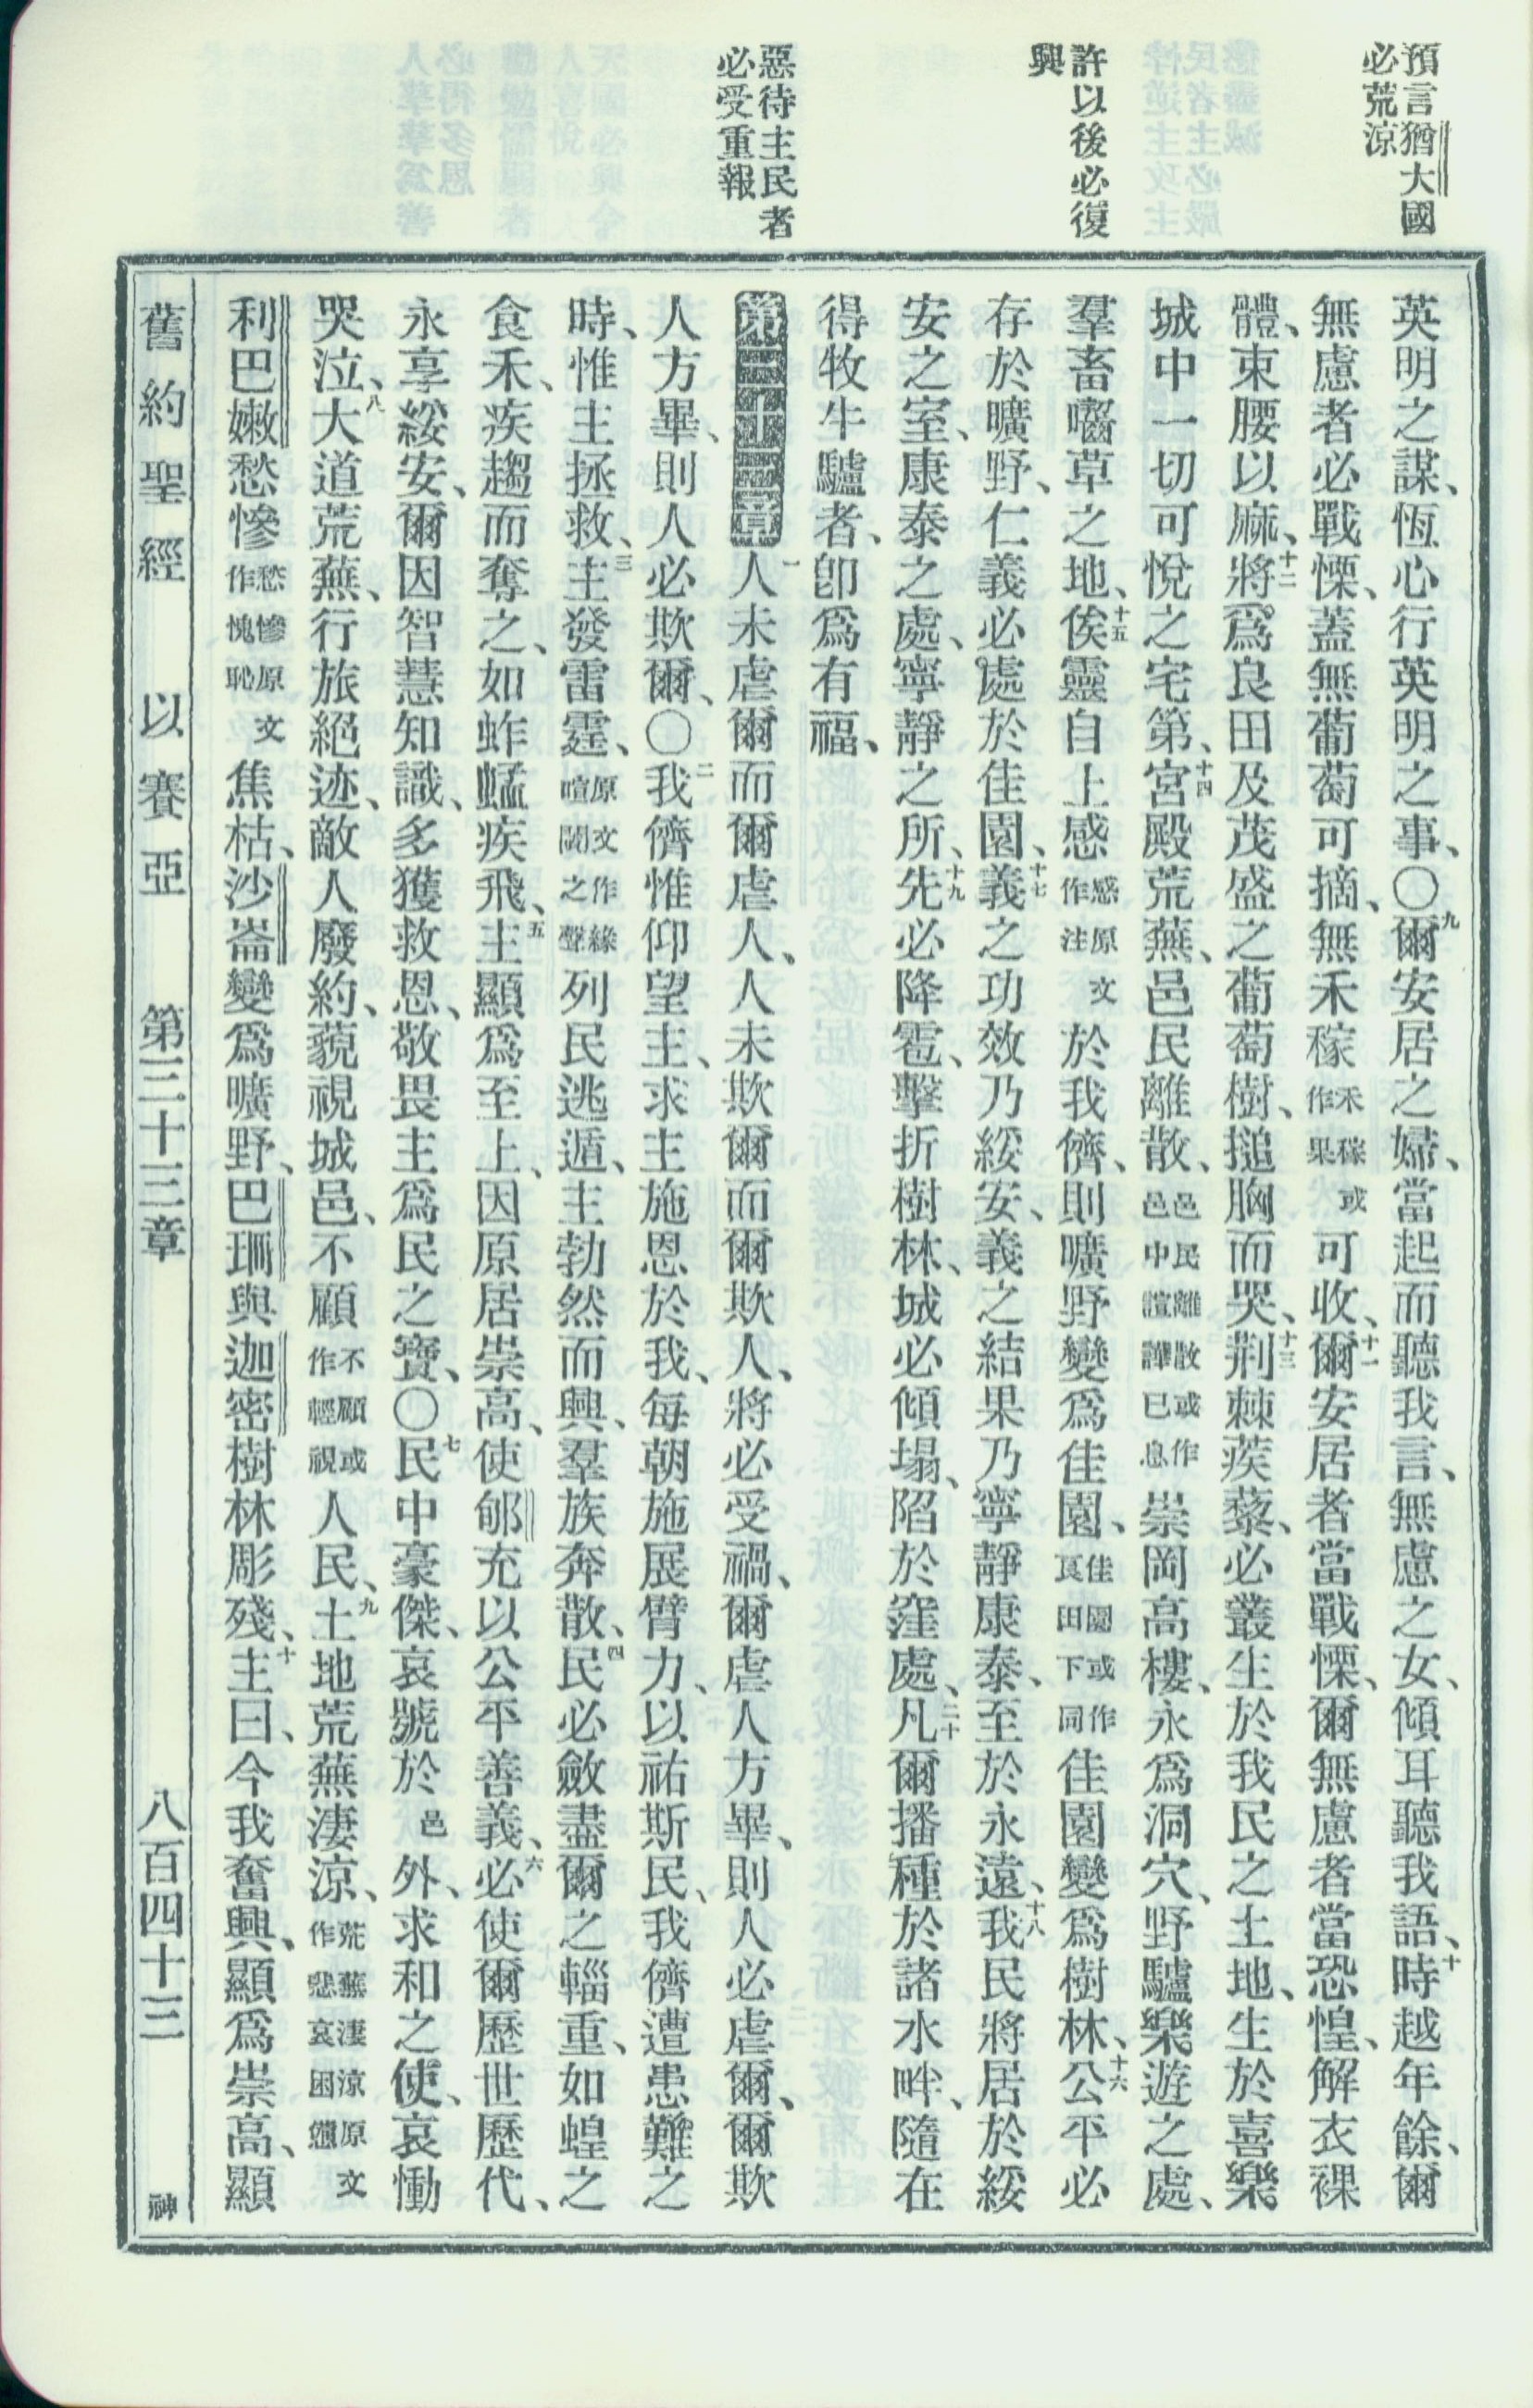 預言猶大國
必荒涼
許以後必復
興
惡待主民者
必受重報
英明之謀、恆心行英明之事、〇九爾安居之婦、當起而聽我言、無慮之女、傾耳聽我語、十時越年餘、爾
無慮者必戰慄、蓋無葡萄可摘、無禾稼禾稼或作果可收、十一爾安居者當戰慄、爾無慮者當恐惶、解衣裸
體、束腰以麻、十二將爲良田及茂盛之葡萄樹、搥胸而哭、十三荆棘蒺藜、必叢生於我民之土地、生於喜樂
城中一切可悅之宅第、十四宮殿荒蕪、邑民離散、邑民離散或作邑中諠譁已息崇岡高樓、永爲洞穴、野驢樂遊之處、
羣畜囓草之地、十五俟靈自上感感原文作注於我儕、則曠野變爲佳園、佳園或作良田下同佳園變爲樹林、十六公平必
存於曠野、仁義必處於佳園、十七義之功效乃綏安、義之結果乃寧靜康泰、至於永遠、十八我民將居於綏
安之室、康泰之處、寧靜之所、十九先必降雹、擊折樹林、城必傾塌、陷於窪處、二十凡爾播種於諸水畔、隨在
得牧牛驢者、卽爲有福、
第三十三章一人未虐爾而爾虐人、人未欺爾而爾欺人、將必受禍、爾虐人方畢、則人必虐爾、爾欺
人方畢、則人必欺爾、〇二我儕惟仰望主、求主施恩於我、每朝施展臂力、以祐斯民、我儕遭患難之
時、惟主拯救、三主發雷霆、原文作緣喧闐之聲列民逃遁、主勃然而興、羣族奔散、四民必斂盡爾之輜重、如蝗之
食禾、疾趨而奪之、如蚱蜢疾飛、五主顯爲至上、因原居崇高、使郇充以公平善義、六必使爾歷世歷代、
永享綏安、爾因智慧知識、多獲救恩、敬畏主爲民之寶、〇七民中豪傑、哀號於邑外、求和之使、哀慟
哭泣、八大道荒蕪、行旅絕迹、敵人廢約、藐視城邑、不顧不顧或作輕視人民、九土地荒蕪淒涼、荒蕪淒涼原文作悲哀困憊
利巴嫩愁慘愁慘原文作愧恥焦枯、沙崙變爲曠野、巴珊與迦密樹林彫殘、十主曰、今我奮興、顯爲崇高、顯
舊約聖經 以賽亞 第三十三章 八百四十三 神